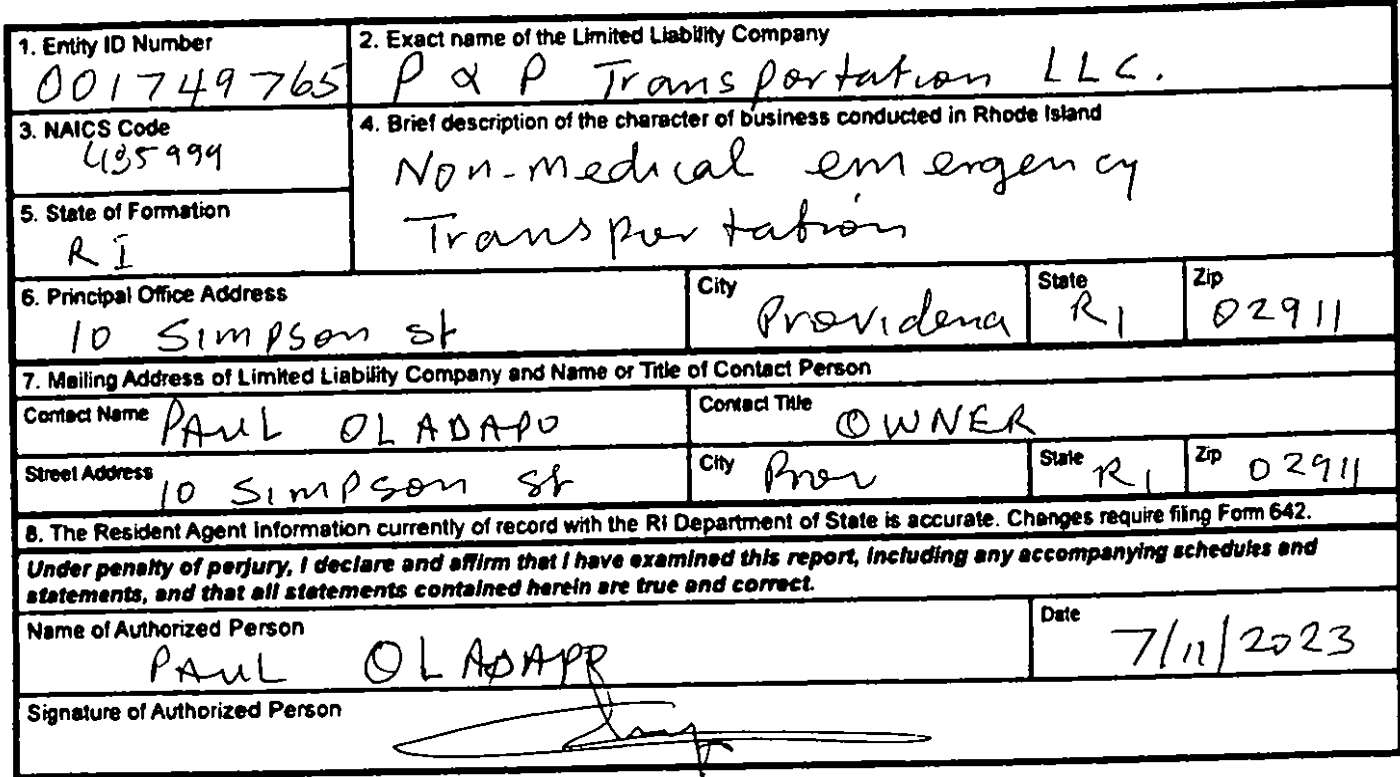 1. Entity ID Number
001749765
2. Exact name of the Limited Liability Company
P & P Transportation LLC.
3. NAICS Code
485999
4. Brief description of the character of business conducted in Rhode Island
Non-medical emergency
Transportation
5. State of Formation
RI
6. Principal Office Address
10 Simpson st
City
Providence
State
RI
Zip
02911
7. Mailing Address of Limited Liability Company and Name or Title of Contact Person
Contact Name PAUL OLADAPO
Contact Title OWNER
Street Address 10 Simpson st
City Prov
State RI
Zip 02911
8. The Resident Agent Information currently of record with the RI Department of State is accurate. Changes require filing Form 642.
Under penalty of perjury, I declare and affirm that I have examined this report, including any accompanying schedules and
statements, and that all statements contained herein are true and correct.
Name of Authorized Person
PAUL OLADAPO
Date
7/11/2023
Signature of Authorized Person